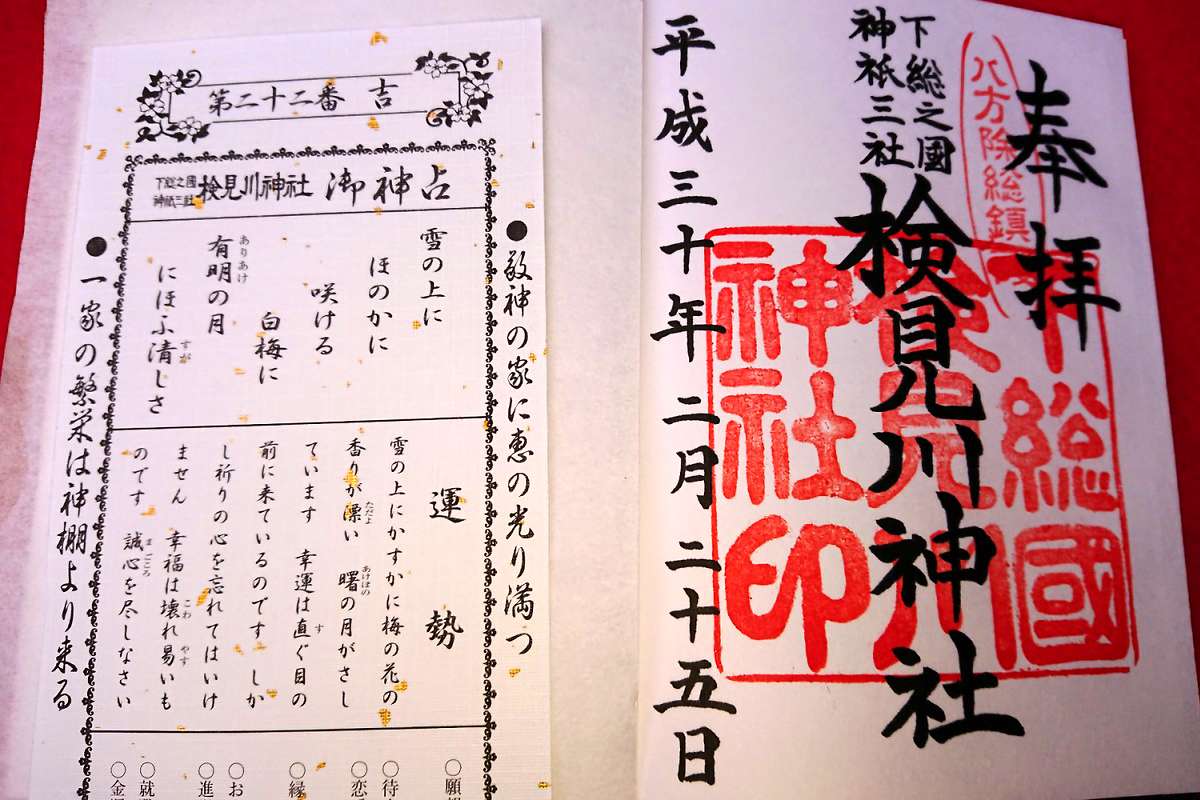 奉拝
八方除総鎮
下総之國
神祇三社
検見川神社
下総國
検見川
神社印
平成三十年二月二十五日
第二十二番 吉
下総之國
神祇三社
検見川神社 御神占
●敬神の家に恵の光り満つ
雪の上に
ほのかに
咲ける
白梅に
有明の月
ありあけ
にほふ清しさ
すが
運勢
雪の上にかすかに梅の花の
香りが漂い 曙の月がさし
ただよ
あけぼの
ています 幸運は直ぐ目の
す
前に来ているのです しか
し祈りの心を忘れてはいけ
ません 幸福は壊れ易いも
こわ
やす
のです 誠心を尽しなさい
まごころ
●一家の繁栄は神棚より来る
○願
○待
○恋
○縁
○お
○進
○就
○金